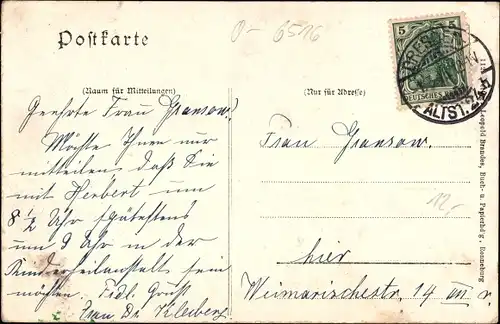 Postkarte
0-6516
(Raum für Mitteilungen)
(Nur für Adresse)
5 5
DEUTSCHES REICH
DRESDEN
ALTST.
Geehrte Frau Gransow!
Möchte Ihnen nur
mitteilen, daß Sie
mit Herbert um
8 1/2 Uhr spätestens
um 9 Uhr in der
Kinderheilanstalt sein
möchten. Frdl. Gruß
Frau Dr. Kleiber
Frau Gransow.
12,-
hier
Weimarischestr. 14 III r.
Leopold Brandes, Buch- u. Papierhdlg., Ronneburg